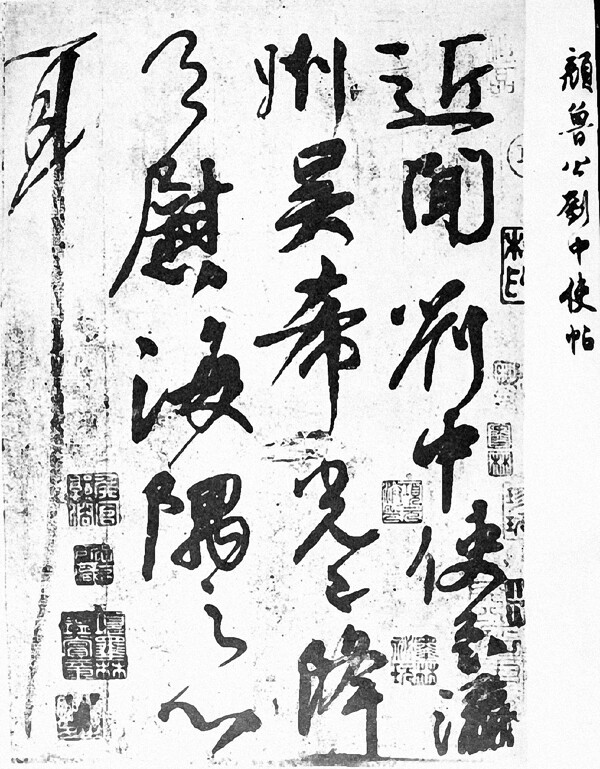 顏魯公劉中使帖
近聞劉中使至瀛
州吳希光已降
足慰海隅之心
耳